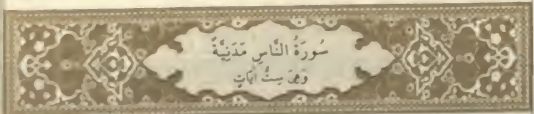 سُورَةُ النَّاسِ مَدَنِيَّةٌ
وَهِىَ سِتُّ اٰيَاتٍ